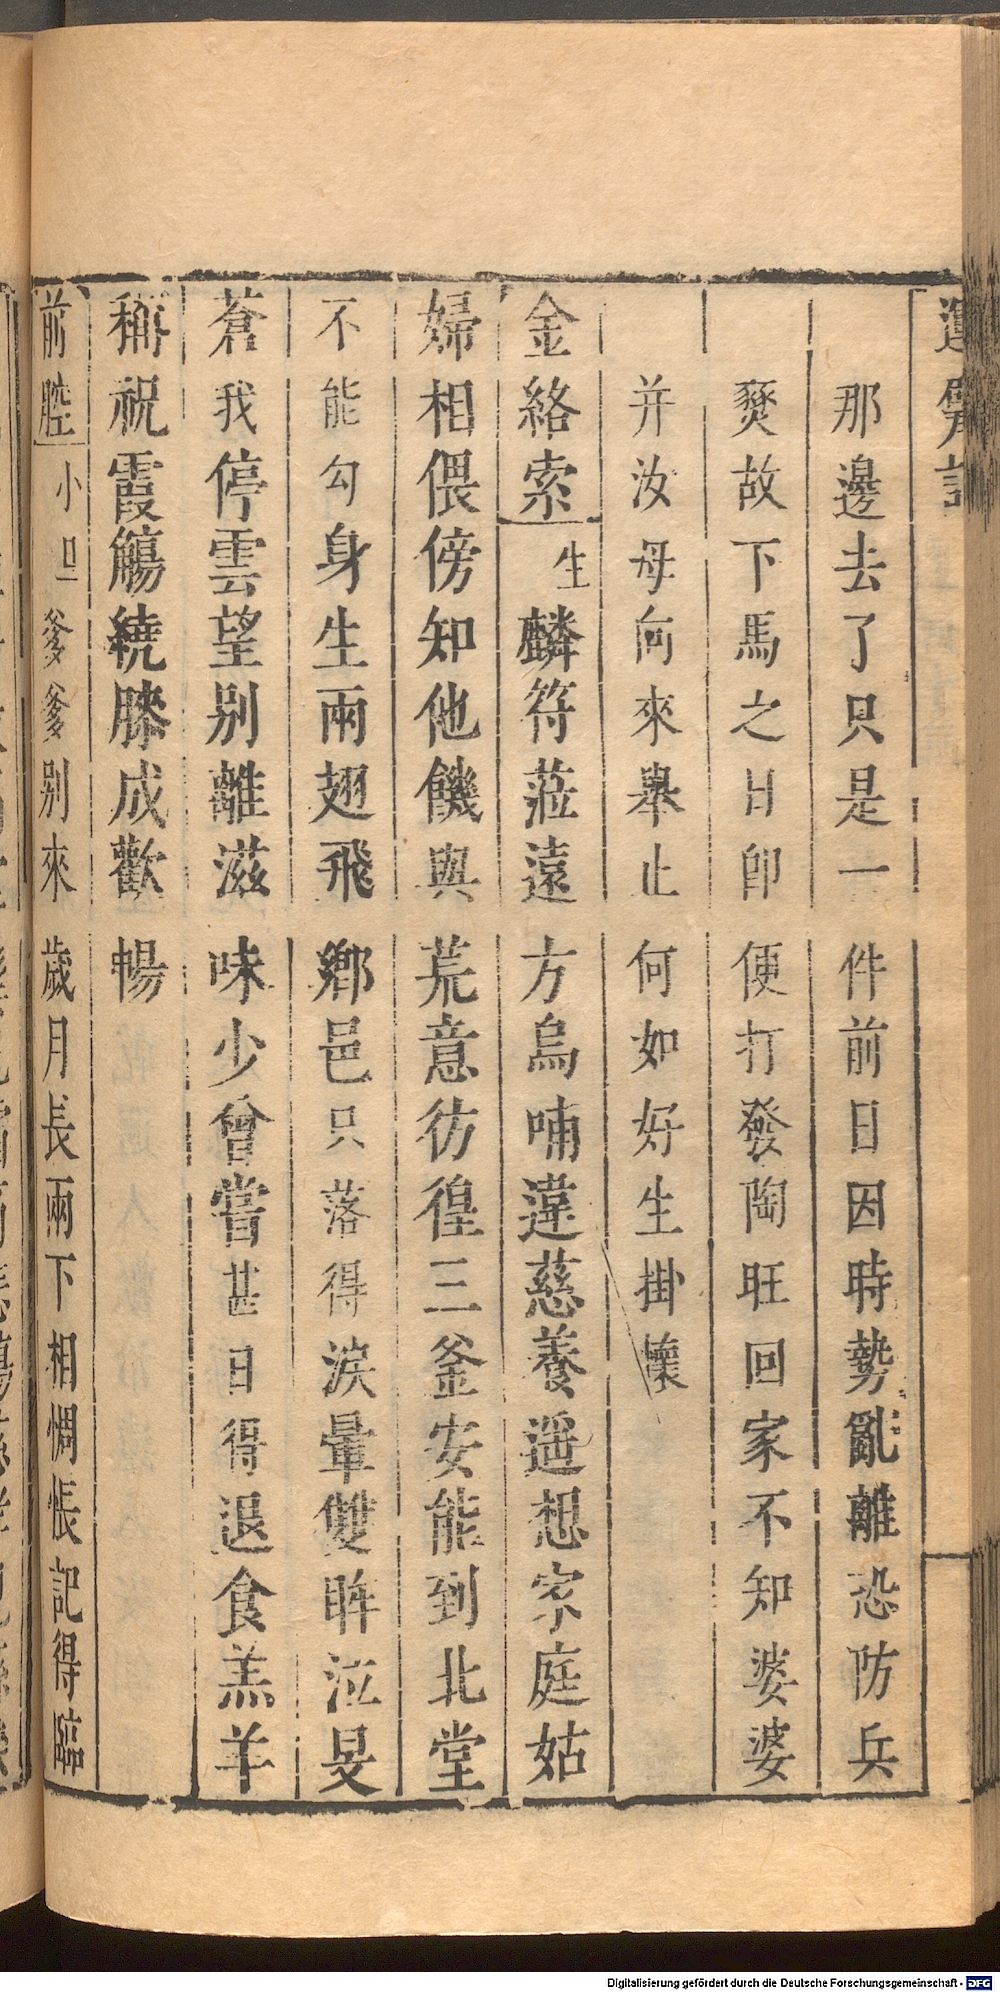 那邊去了只是一件前日因時勢亂離恐防兵
燹故下馬之日卽便打發陶旺回家不知婆婆
并汝母向來舉止何如好生掛懷
金絡索 生 麟符蒞遠方烏哺違慈養遥想家庭姑
婦相偎傍知他饑與荒意彷徨三釜安能到北堂
不能勾身生兩翅飛鄉邑只落得淚暈雙眸泣旻
蒼我停雲望别離滋味少曾嘗甚日得退食羔羊
稱祝霞觴繞膝成歡暢
前腔 小旦 爹爹别來歲月長兩下相惆悵記得臨
Digitalisierung gefördert durch die Deutsche Forschungsgemeinschaft - DFG